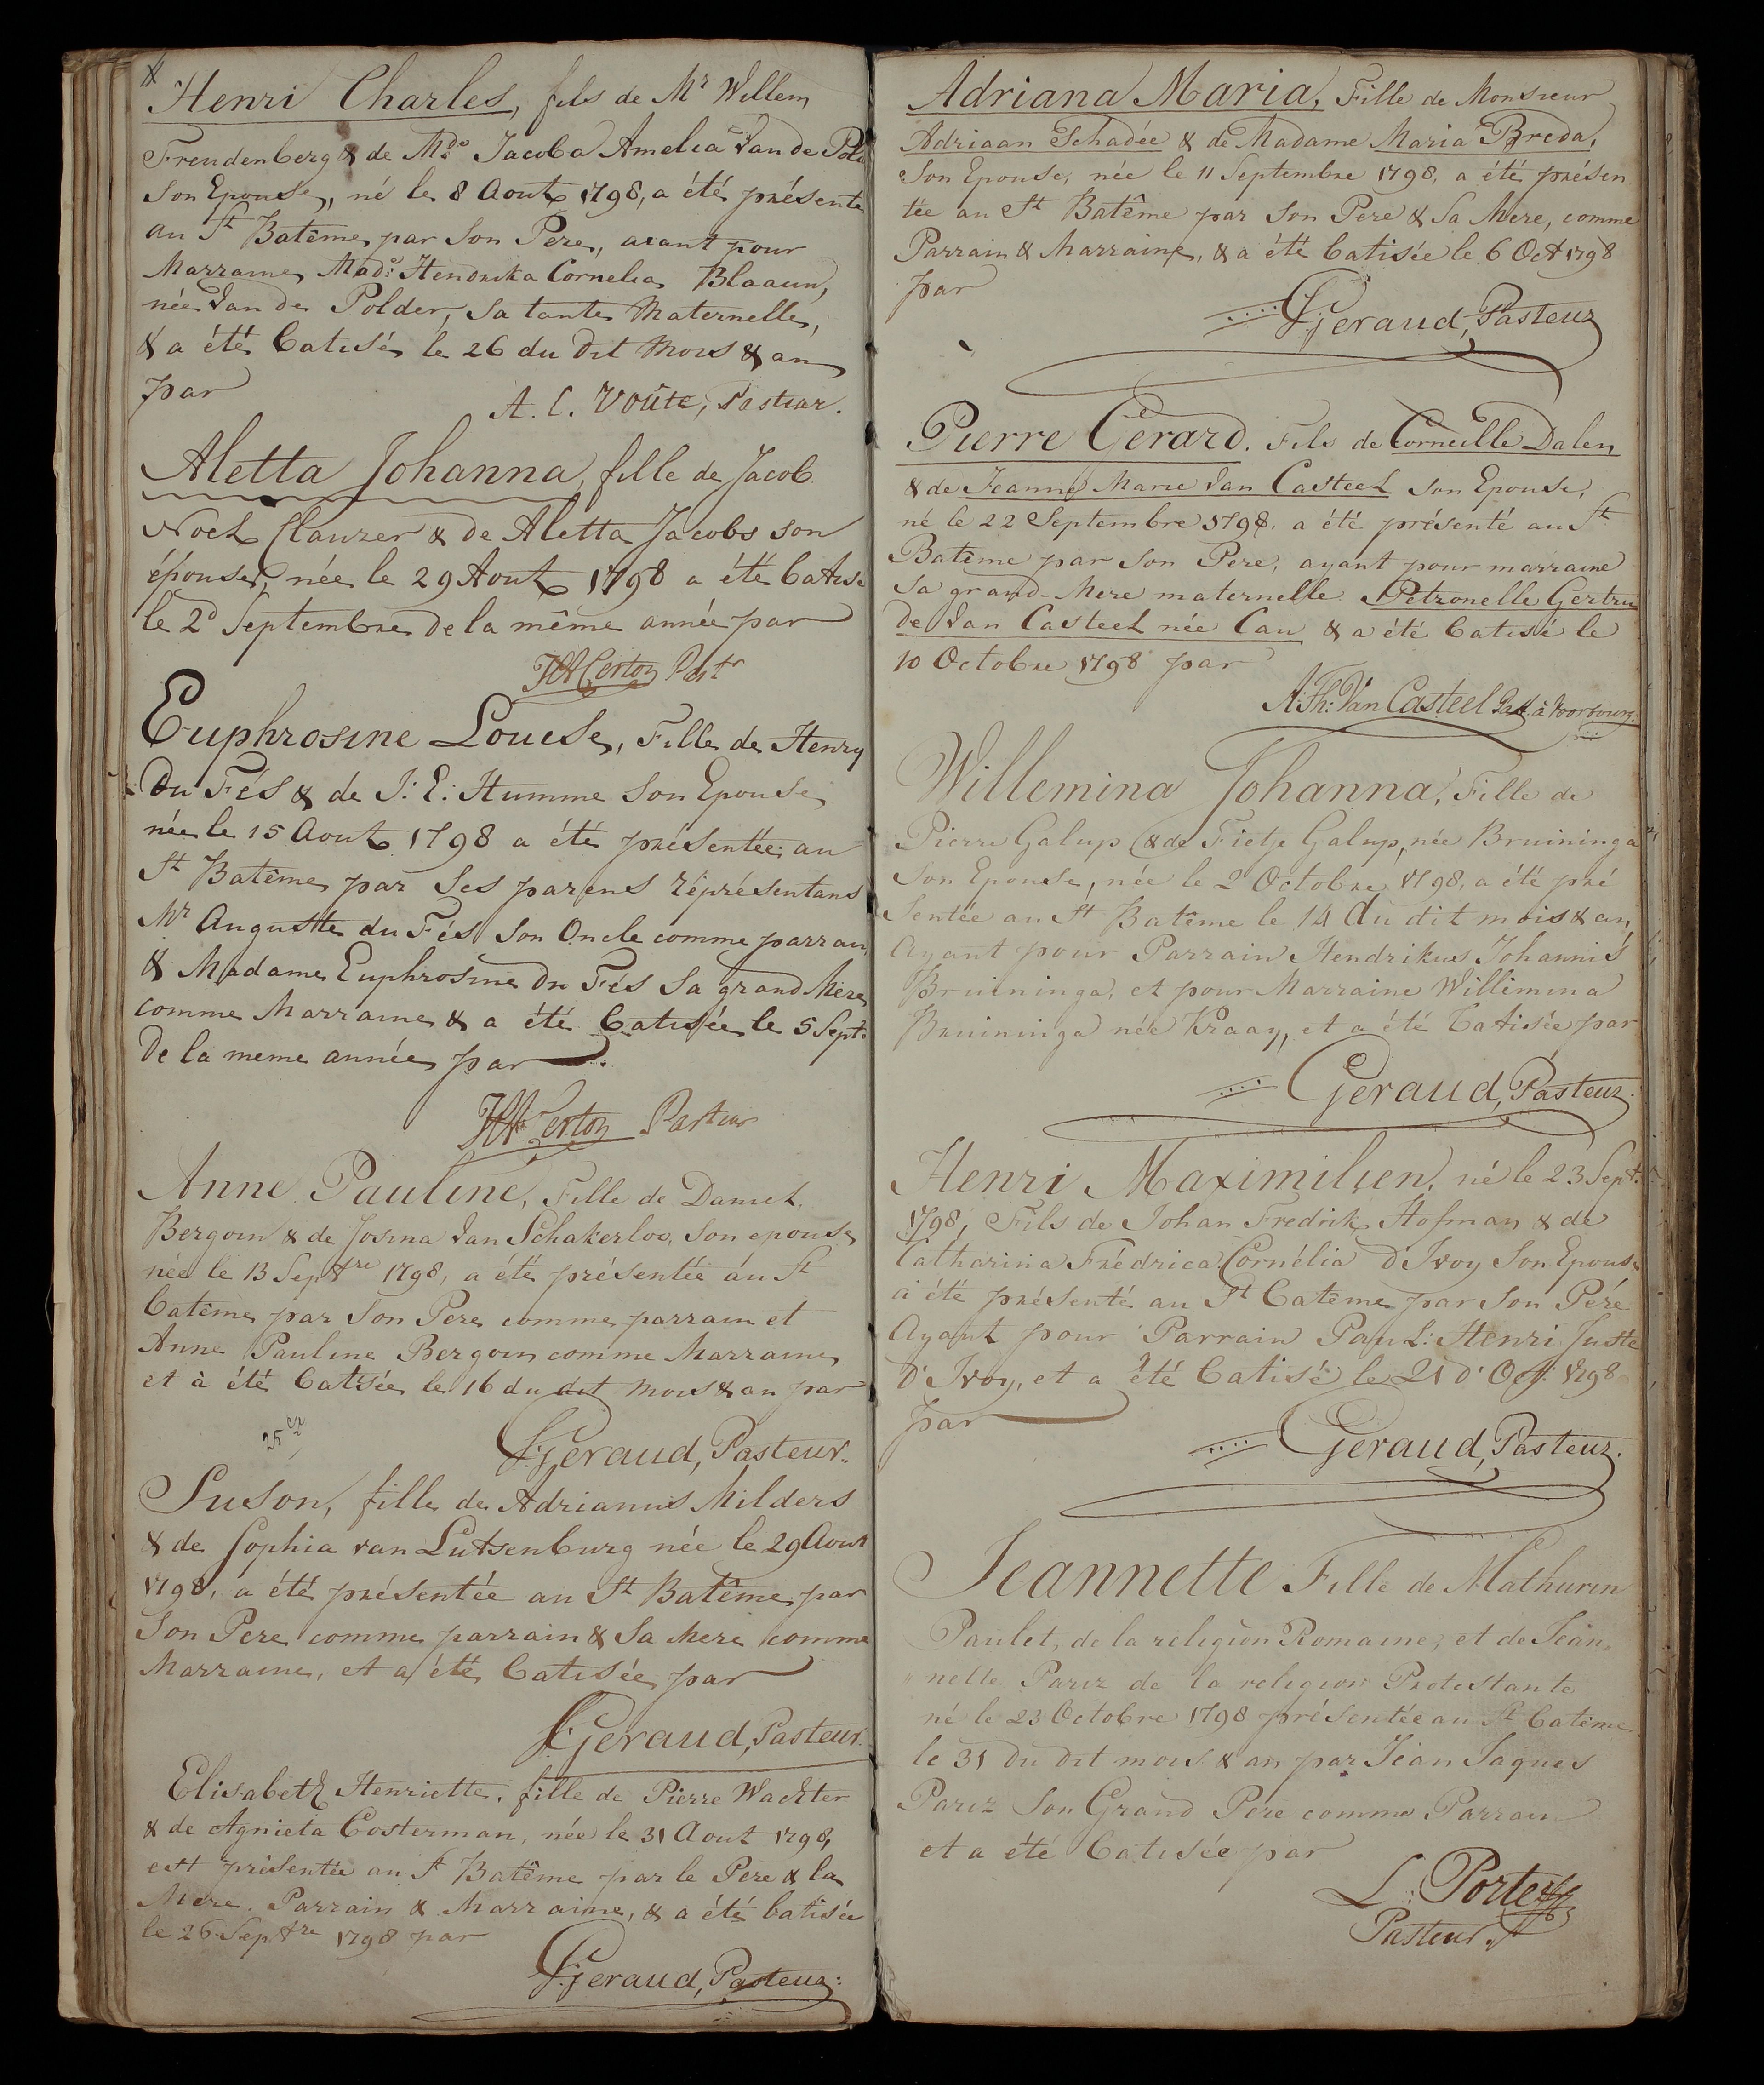 Henri Charles, fils de Mr Willem
Freudenberg & de Mde Jacoba Amelia Van de Pol
Son Epouse, né le 8 Aout 1798, a été présenté
au St Batême par Son Pere, aiant pour
Marraine Made Hendrika Cornelia Blaauw,
née Van de Polder, Sa tante Maternelle,
& a été batisé le 26 du dit Mois & an
par
A. C. Voûte, Pasteur.
Aletta Johanna, fille de Jacob
Noel Clauzer & de Aletta Jacobs son
épouse, née le 29 Aout 1798 a été batisé
le 2d Septembre de la même année par
Certon Pastr
Euphrosine Louise, Fille de Henry
Du Fés & de J: E: Humme Son Epouse
née le 15 Aout 1798 a été présentée au
St Batême par Ses parens réprésentans
Mr Auguste du Fés Son Oncle comme parrain
& Madame Euphrosine Du Fés Sa grand Mere
comme Marraine & a été batisée le 5 Sept.
De la meme année par
Certon Pasteur
Anne Pauline, Fille de Daniel
Bergoin & de Josina Van Schakerloo, Son epouse
née le 13 Septre 1798, a été présentée au St
batême par Son Pere comme parrain et
Anne Pauline Bergoin comme Marraine
et à été batisée le 16 du dit mois & an par
Geraud, Pasteur.
Suson, fille de Adrianus Milders
& de Sophia van Lutsenburg née le 29 Aout
1798, a été présentée au St Batême par
Son Pere comme parrain & Sa Mere comme
Marraine, et a été batisée par
Geraud, Pasteur.
Elisabeth Henriette, fille de Pierre Wachter
& de Agnieta Costerman, née le 31 Aout 1798,
est présentée au St Batême par le Pere & la
Mere, Parrain & Marraine, & a été batisée
le 26 Septre 1798 par
Geraud, Pasteur.
Adriana Maria, Fille de Monsieur
Adriaan Schadée & de Madame Maria Breda,
Son Epouse, née le 11 Septembre 1798, a été présen
tée au St Batême par Son Pere & Sa Mere, comme
Parrain & Marraine, & a été batisée le 6 Oct 1798
par
Geraud, Pasteur
Pierre Gerard. Fils de Corneille Dalen
& de Jeanne Marie Van Casteel Son Epouse,
né le 22 Septembre 1798, a été présenté au St
Batême par Son Pere, ayant pour marraine
Sa grand-Mere maternelle Petronelle Gertru
de Van Casteel née Cau & a été batisé le
10 Octobre 1798 par
A: Th: Van Casteel Past. à Voorbourg.
Willemina Johanna, Fille de
Pierre Galup & de Fietje Galup, née Bruininga
Son Epouse, née le 2 Octobre 1798, a été pré
sentée au St Batême le 14 du dit mois & an,
Ayant pour Parrain Hendrikus Johannis
Bruininga, et pour Marraine Willemina
Bruininga née Kraay, et a été batisée par
Geraud, Pasteur.
Henri Maximilien, né le 23 Sept.
1798, Fils de Johan Fredrik Hofman & de
Catharina Frédrica Cornélia d'Ivoy Son Epouse
a été présenté au St batême par Son Pere
Ayant pour Parrain Paul: Henri Juste
D'Ivoy, et a été batisé le 21 d'Oct: 1798
par
Geraud, Pasteur.
Jeannette Fille de Mathurin
Paulet, de la religion Romaine, et de Jean,
nette Pariz de la religion Protestante
né le 23 Octobre 1798 présentée au St batême
le 31 du dit mois & an par Jean Jaques
Pariz Son Grand Pere comme Parrain
et a été batisée par
L: Porte
Pasteur.